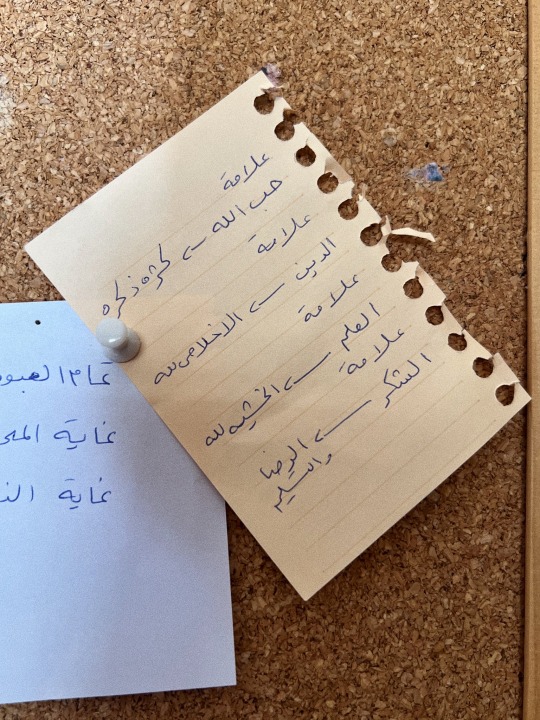 علامة
حب الله ← كثرة ذكره
علامة
الدين ← الاخلاص لله
علامة
العلم ← الخشية لله
علامة
الشكر ← الرضا
والتسليم
تمام العبو
غاية
غاية